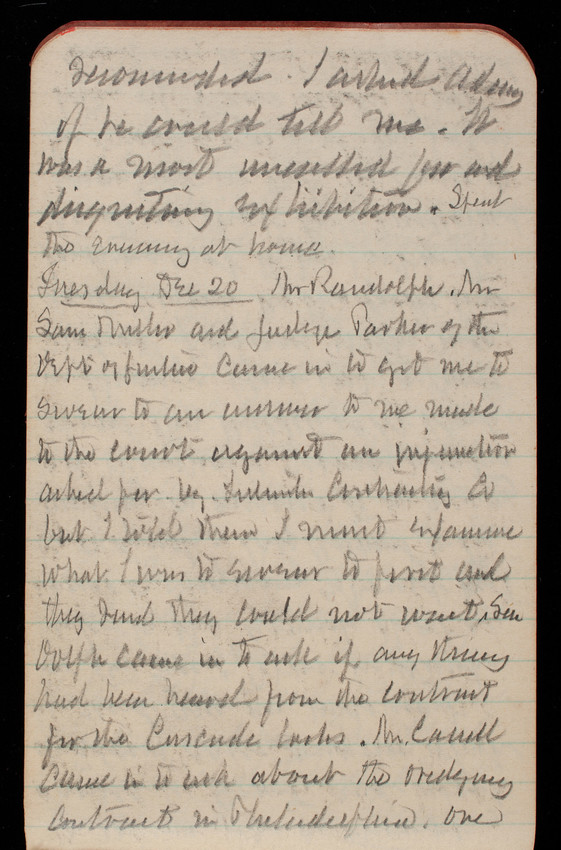 recomended. I asked Adams
if he could tell me. It
was a most uncalled for and
disgusting exhibition. Spent
the evening at home.
Tuesday Dec 20 Mr Randolph, Mr
Sam and Judge Parker of the
Dept of Justice came in to get me to
swear to an answer to be made
to the court against an injunction
asked for by Contracting Co
but I told them I must examine
what I was to swear to first and
they said they could not wait, Sen
Dolph came in to ask if any thing
had been heard from the contract
for the Cascade locks. Mr. Carroll
came in to ask about the dredging
contract in Philadelphia. One